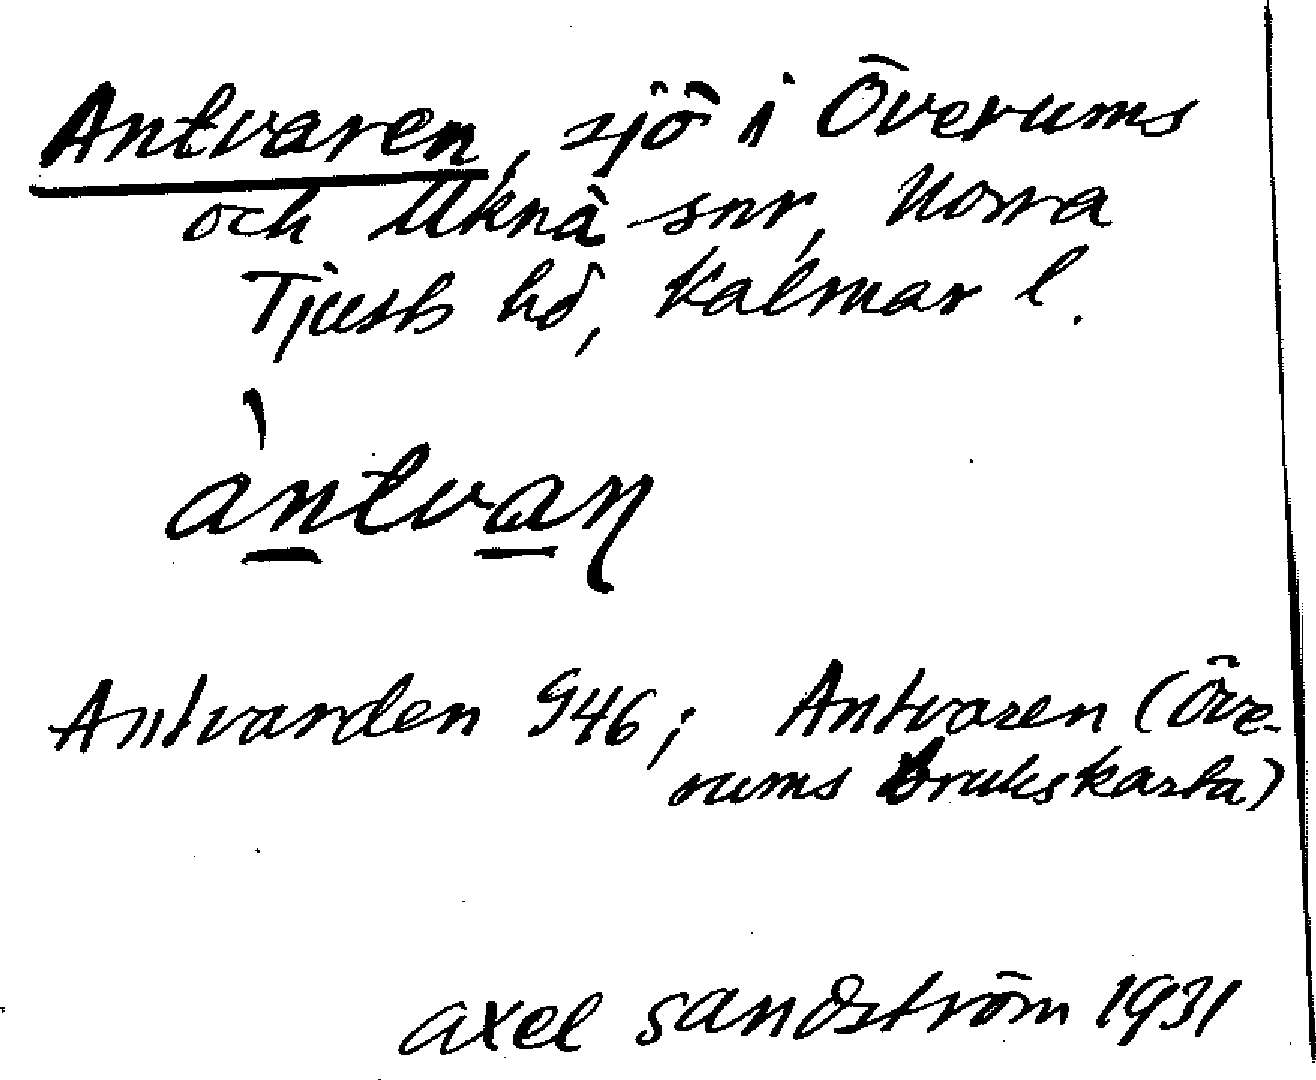 Antvaren, sjö i Överums
och Ukna snr, Norra
Tjusts hd, Kalmar l.
àntvaɳ
Antvarden G46; Antvaren (Öve-
rums Brukskarta)
Axel Sandström 1931